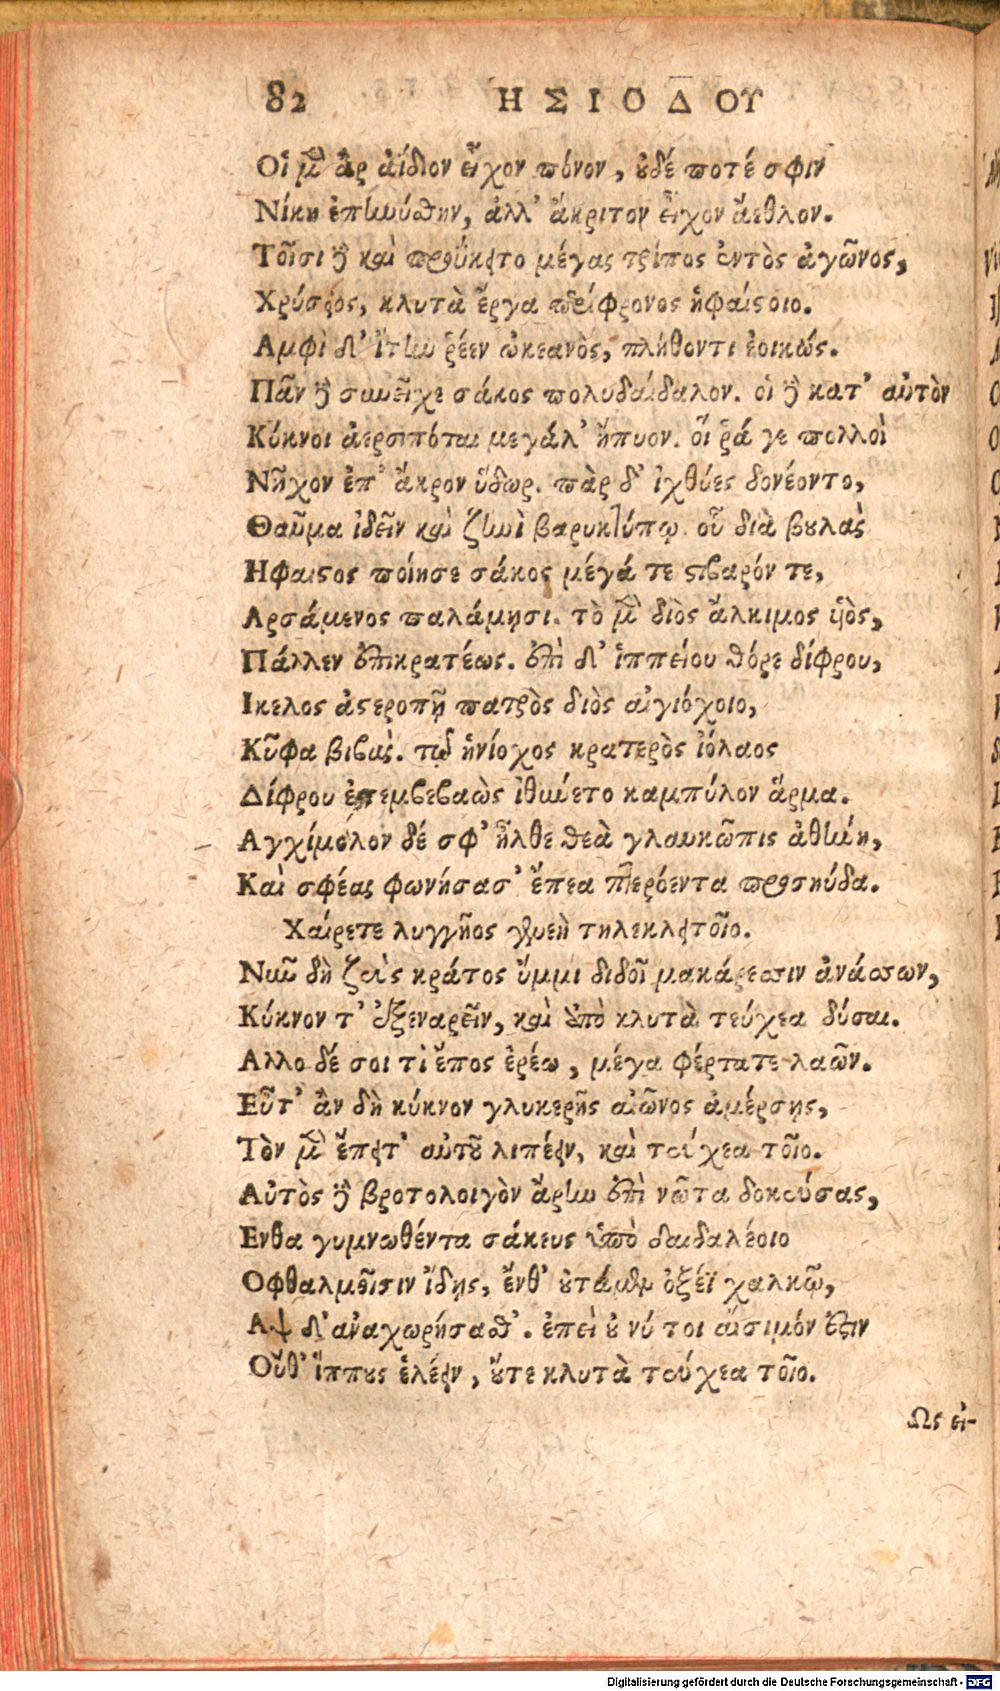 82 ΗΣΙΟΔΟΥ
Οἱ μὲν ἂρ ἀίδιον εἶχον πόνον, οὐδέ ποτέ σφιν
Νίκη ἐπηνύσθην, ἀλλ' ἄκριτον εἶχον ἄεθλον.
Τοῖσι δὲ καὶ προὔκειτο μέγας τρίπος ἐντὸς ἀγῶνος,
Χρύσειος, κλυτὰ ἔργα περίφρονος ἡφαίστοιο.
Αμφὶ δ' ἴτην ῥέεν ὠκεανὸς, πλήθοντι ἐοικώς.
Πᾶν δὲ συνεῖχε σάκος πολυδαίδαλον. οἱ δὲ κατ' αὐτὸν
Κύκνοι ἀερσιπόται μεγάλ' ἤπυον. οἵ ῥά γε πολλοὶ
Νῆχον ἐπ' ἄκρον ὕδωρ. πὰρ δ' ἰχθύες δονέοντο,
Θαῦμα ἰδεῖν καὶ ζηνὶ βαρυκτύπῳ. οὗ διὰ βουλὰς
Ηφαιστος ποίησε σάκος μέγά τε στιβαρόν τε,
Αρσάμενος παλάμῃσι. τὸ μὲν διὸς ἄλκιμος ὑὸς,
Πάλλεν ἐπικρατέως. ἐπὶ δ' ἱππείου θόρε δίφρου,
Ικελος ἀστεροπῇ πατρὸς διὸς αἰγιόχοιο,
Κῦφα βιβάς. τῷ δ' ἡνίοχος κρατερὸς ἰόλαος
Δίφρου ἐπεμβεβαὼς ἰθύνετο καμπύλον ἅρμα.
Αγχίμολον δέ σφ' ἦλθε θεὰ γλαυκῶπις ἀθήνη,
Καὶ σφέας φωνήσασ' ἔπεα πτερόεντα προσηύδα.
Χαίρετε λυγγῆος γενεὴ τηλεκλειτοῖο.
Νῦν δὴ ζεὺς κράτος ὔμμι διδοῖ μακάρεσσιν ἀνάσσων,
Κύκνον τ' ἐξεναρεῖν, καὶ ἀπὸ κλυτὰ τεύχεα δύσαι.
Αλλο δέ σοι τὶ ἔπος ἐρέω, μέγα φέρτατε λαῶν.
Εὖτ' ἂν δὴ κύκνον γλυκερῆς αἰῶνος ἀμέρσῃς,
Τὸν μὲν ἔπειτ' αὐτοῦ λιπέειν, καὶ τεύχεα τοῖο.
Αὐτὸς δὲ βροτολοιγὸν ἄρην ἐπὶ νῶτα δοκεύσας,
Ενθα γυμνωθέντα σάκευς ὑπὸ δαιδαλέοιο
Οφθαλμοῖσιν ἴδῃς, ἔνθ' οὐτάμεν ὀξέϊ χαλκῷ,
Αψ δ' ἀναχωρήσασθ'. ἐπεὶ οὐ νύ τοι αἴσιμόν ἐστιν
Οὔθ' ἵππους ἑλέειν, οὔτε κλυτὰ τεύχεα τοῖο.
Ως εἰ-
Digitalisierung gefördert durch die Deutsche Forschungsgemeinschaft - DFG